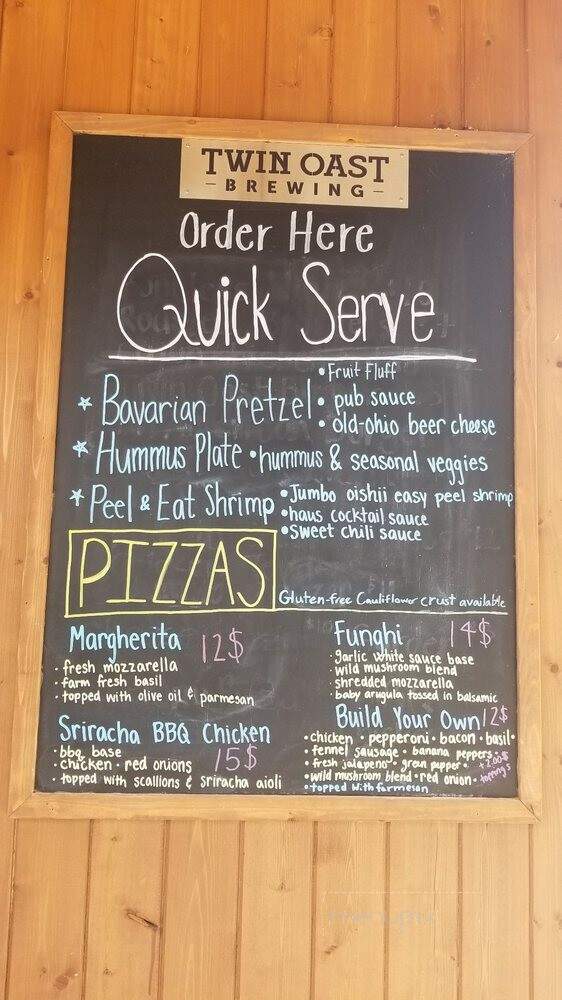 TWIN OAST
- BREWING -
Order Here
Quick Serve
Bavarian Pretzel
• Fruit Fluff
• pub sauce
• old-ohio beer cheese
Hummus Plate • hummus & seasonal veggies
Peel & Eat Shrimp
• Jumbo oishii easy peel shrimp
• haus cocktail sauce
• Sweet chili sauce
PIZZAS
Gluten-free Cauliflower crust available
Margherita 12$
• fresh mozzarella
• farm fresh basil
• topped with olive oil & parmesan
Sriracha BBQ Chicken
15$
• bbq base
• chicken • red onions
• topped with scallions & sriracha aioli
Funghi 14$
• garlic white sauce base
• wild mushroom blend
• shredded mozzarella
• baby arugula tossed in balsamic
Build Your Own 12$
• chicken • pepperoni • bacon • basil •
• fennel sausage • banana peppers •
• fresh jalapeno • green pepper •
• wild mushroom blend • red onion •
+2.00$
toppings
• topped with farmesan